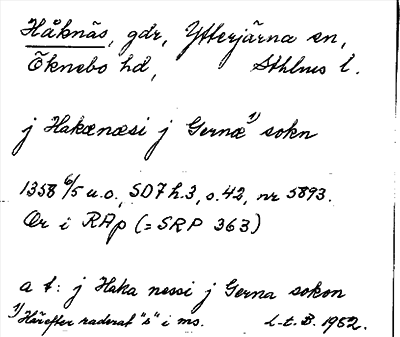 Håknäs, gdr, Ytterjärna sn,
Öknebo hd, Sthlms l.
j Hakænæsi j Gernæ¹⁾ sokn
1358 6/5 u.o., SD7 h.3, s.42, nr 5893.
Or i RAp (= SRP 363)
a t: j Haka nessi j Gerna sokon
¹⁾ Härefter raderat "s" i ms. l.t.B. 1962.